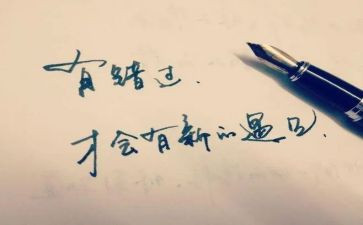 有错过.
才会有新的遇见.